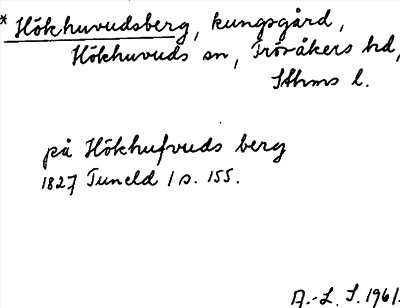 * Hökhuvudsberg, kungsgård,
Hökhuvuds sn, Frösåkers hd,
Sthms l.
på Hökhufvuds berg
1827 Tuneld 1 s. 155.
A.-L. S. 1961.